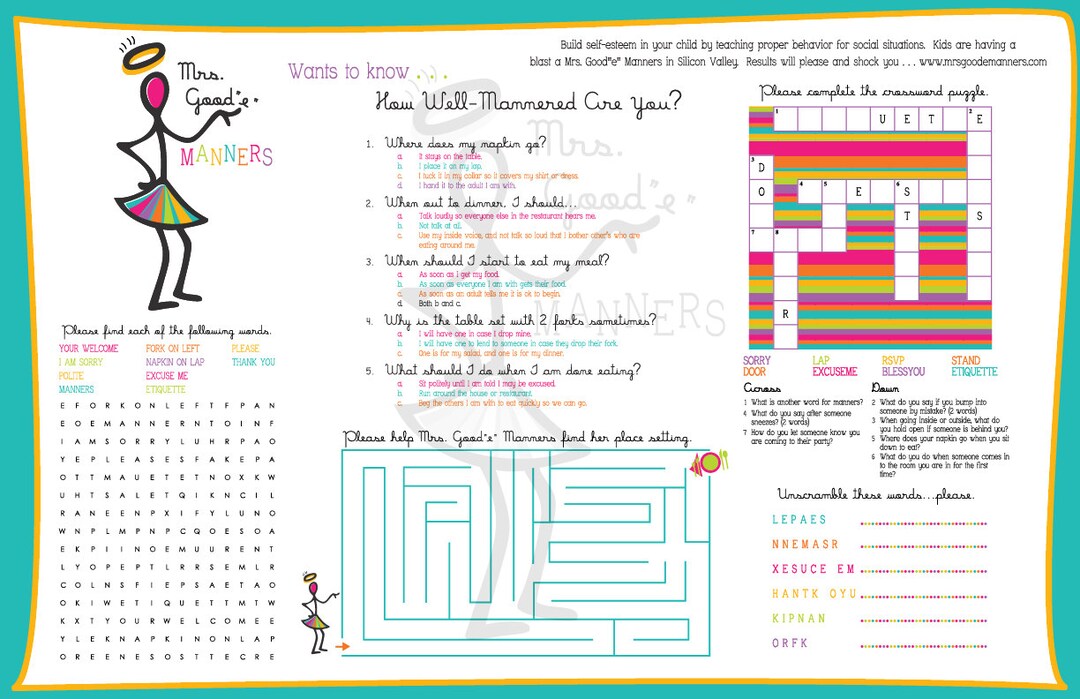 Mrs.
Good"e"
MANNERS
Wants to know . . .
Build self-esteem in your child by teaching proper behavior for social situations. Kids are having a
blast a Mrs. Good"e" Manners in Silicon Valley. Results will please and shock you . . . www.mrsgoodemanners.com
How Well-Mannered Are You?
1. Where does my napkin go?
a. It stays on the table.
b. I place it on my lap.
c. I tuck it in my collar so it covers my shirt or dress.
d. I hand it to the adult I am with.
2. When out to dinner, I should...
a. Talk loudly so everyone else in the restaurant hears me.
b. Not talk at all.
c. Use my inside voice, and not talk so loud that I bother other's who are
eating around me.
3. When should I start to eat my meal?
a. As soon as I get my food.
b. As soon as everyone I am with gets their food.
c. As soon as an adult tells me it is ok to begin.
d. Both b and c.
4. Why is the table set with 2 forks sometimes?
a. I will have one in case I drop mine.
b. I will have one to lend to someone in case they drop their fork.
c. One is for my salad, and one is for my dinner.
5. What should I do when I am done eating?
a. Sit politely until I am told I may be excused.
b. Run around the house or restaurant.
c. Beg the others I am with to eat quickly so we can go.
Mrs.
Good"e"
MANNERS
Please find each of the following words.
YOUR WELCOME FORK ON LEFT PLEASE
I AM SORRY NAPKIN ON LAP THANK YOU
POLITE EXCUSE ME
MANNERS ETIQUETTE
E F O R K O N L E F T F P A N
E O E M A N N E R N T O I N F
I A M S O R R Y L U H R P A O
Y E P L E A S E S F A K E P A
O T T M A U E T E T N O X K W
U H T S A L E T Q I K N C I L
R A N E E N P X I F Y L U N O
W N P L M P N P C Q O E S O A
E K P I I N O E M U U R E N T
L Y O P E P T L R R S E M L R
C O L N S F I E P S A E T A O
O K I W E T I Q U E T T M T W
K X T Y O U R W E L C O M E E
Y L E K N A P K I N O N L A P
O R E E N E S O S T T E C R E
Please help Mrs. Good"e" Manners find her place setting.
Please complete the crossword puzzle.
1 U E T 2 E
3 D
O 4 5 E 6 S
T S
7 8
R
SORRY LAP RSVP STAND
DOOR EXCUSEME BLESSYOU ETIQUETTE
Across
1 What is another word for manners?
4 What do you say after someone
sneezes? (2 words)
7 How do you let someone know you
are coming to their party?
Down
2 What do you say if you bump into
someone by mistake? (2 words)
3 When going inside or outside, what do
you hold open if someone is behind you?
5 Where does your napkin go when you sit
down to eat?
6 What do you do when someone comes in
to the room you are in for the first
time?
Unscramble these words...please.
LEPAES
NNEMASR
XESUCE EM
HANTK OYU
KIPNAN
ORFK